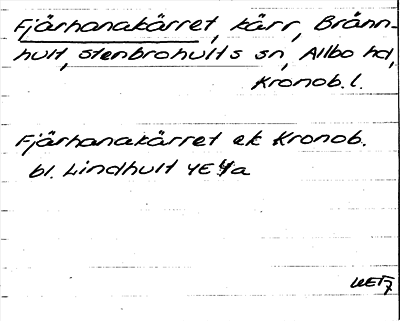 Fjärhanakärret, kärr, Brånn-
hult, Stenbrohults sn, Allbo hd,
Kronob. l.
Fjärhanakärret ek Kronob.
bl. Lindhult 4E 4a